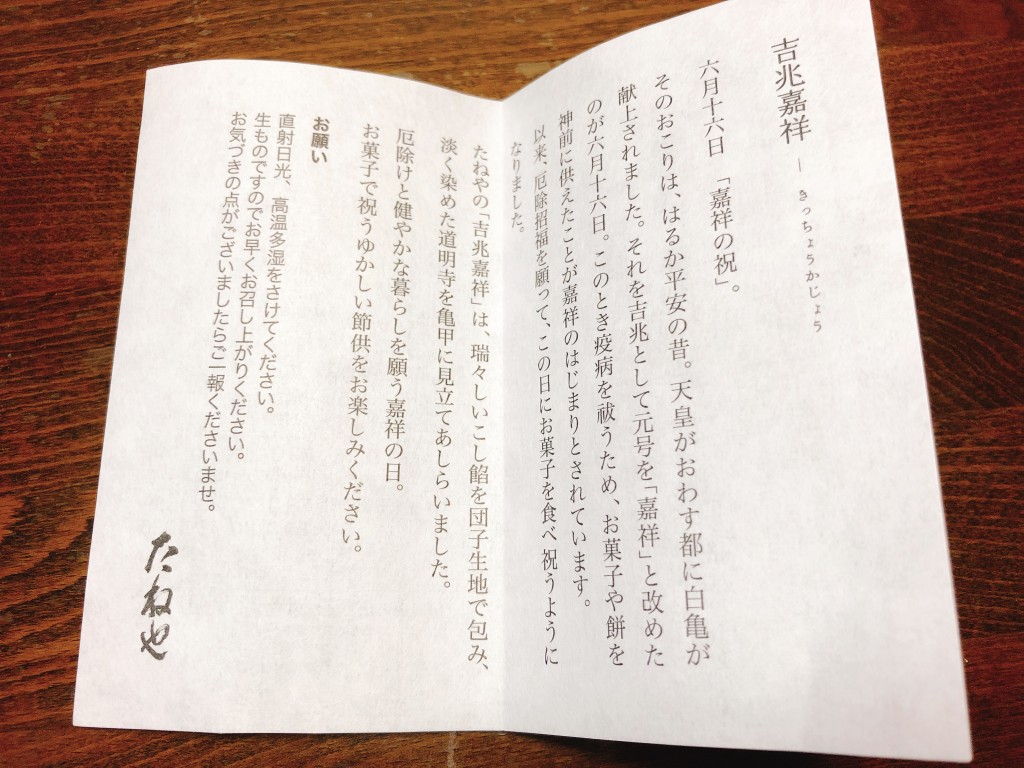 吉兆嘉祥 ― きっちょうかじょう
六月十六日 「嘉祥の祝」。
そのおこりは、はるか平安の昔。天皇がおわす都に白亀が
献上されました。それを吉兆として元号を「嘉祥」と改めた
のが六月十六日。このとき疫病を祓うため、お菓子や餅を
神前に供えたことが嘉祥のはじまりとされています。
以来、厄除招福を願って、この日にお菓子を食べ祝うように
なりました。
たねやの「吉兆嘉祥」は、瑞々しいこし餡を団子生地で包み、
淡く染めた道明寺を亀甲に見立てあしらいました。
厄除けと健やかな暮らしを願う嘉祥の日。
お菓子で祝うゆかしい節供をお楽しみください。
お願い
直射日光、高温多湿をさけてください。
生ものですのでお早くお召し上がりください。
お気づきの点がございましたらご一報くださいませ。
たねや